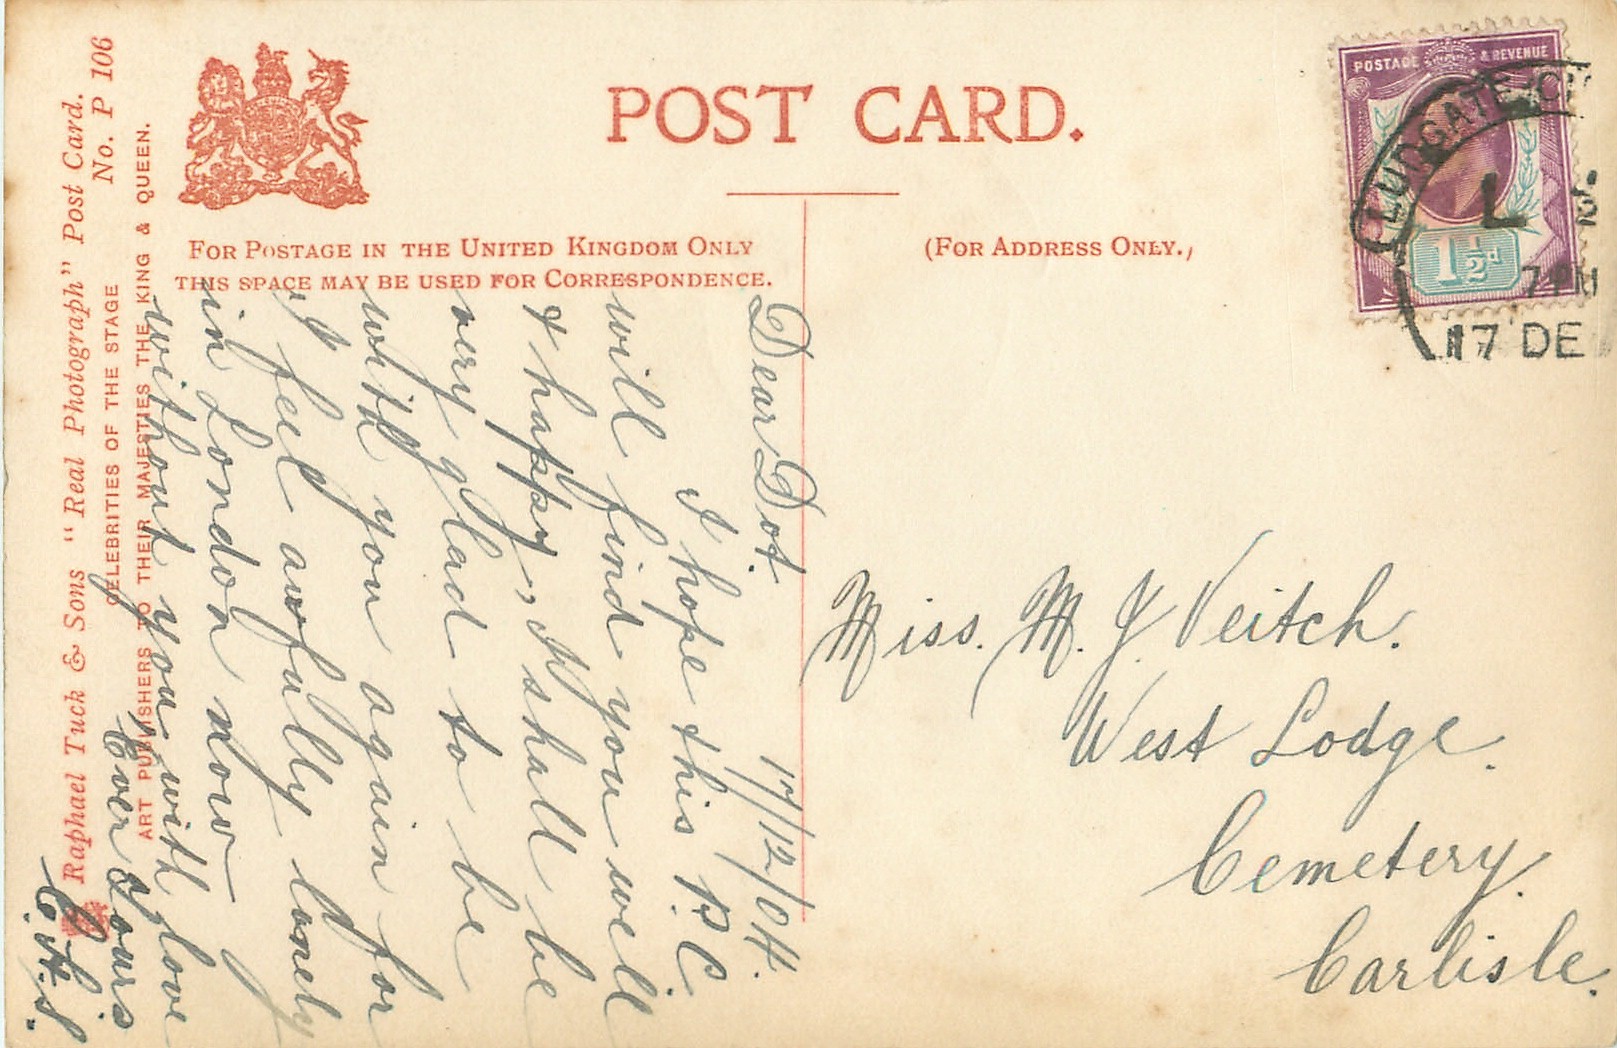 POST CARD.
FOR POSTAGE IN THE UNITED KINGDOM ONLY
THIS SPACE MAY BE USED FOR CORRESPONDENCE.
(FOR ADDRESS ONLY.)
POSTAGE & REVENUE
1½d
LUDGATE
L
7 PM
17 DE
17/12/04.
Dear Dot.
I hope this P.C
will find you well
& happy, I shall be
very glad to be
with you again for
I feel awfully lonely
in London now
without you with love
Ever Yours
C.H.S.
Miss. M. J. Veitch.
West Lodge.
Cemetery.
Carlisle.
Raphael Tuck & Sons "Real Photograph" Post Card.
No. P 106
CELEBRITIES OF THE STAGE
ART PUBLISHERS TO THEIR MAJESTIES THE KING & QUEEN.